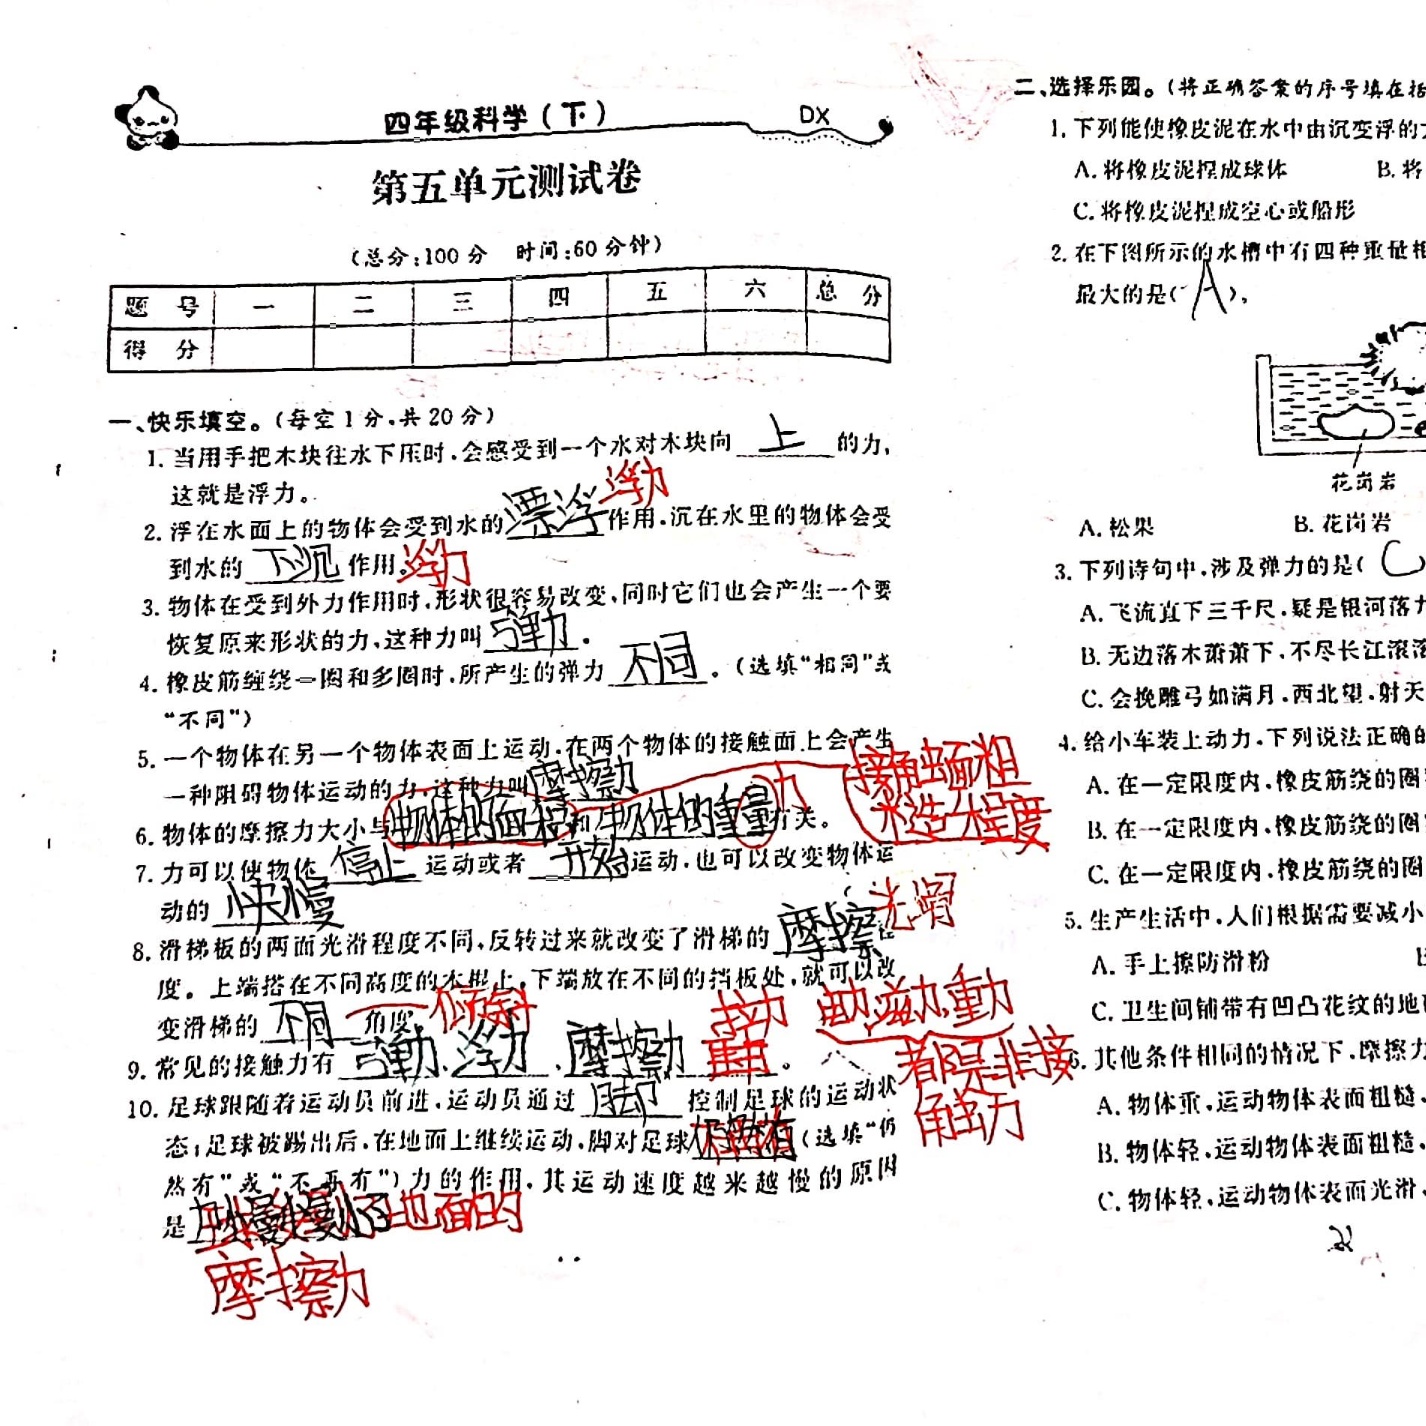 四年级科学(下)
DX
第五单元测试卷
(总分:100分 时间:60分钟)
题 号 一 二 三 四 五 六 总 分
得 分
一、快乐填空。(每空1分,共20分)
1. 当用手把木块往水下压时,会感受到一个水对木块向 上 的力,
这就是浮力。
浮力
2. 浮在水面上的物体会受到水的 漂浮 作用,沉在水里的物体会受
到水的 下沉 作用。浮力
3. 物体在受到外力作用时,形状很容易改变,同时它们也会产生一个要
恢复原来形状的力,这种力叫 弹力 。
4. 橡皮筋缠绕一圈和多圈时,所产生的弹力 不同 。(选填“相同”或
“不同”)
5. 一个物体在另一个物体表面上运动,在两个物体的接触面上会产生
一种阻碍物体运动的力,这种力叫 摩擦力
接触面粗
6. 物体的摩擦力大小与 物体的面积 和 物体的重量 有关。
力
米造大程度
7. 力可以使物体 停止 运动或者 开始 运动,也可以改变物体运
动的 快慢
光滑
8. 滑梯板的两面光滑程度不同,反转过来就改变了滑梯的 摩擦 程
度。上端搭在不同高度的木棍上,下端放在不同的挡板处,就可以改
变滑梯的 不同 角度 倾斜
9. 常见的接触力有 弹力、浮力、摩擦力 。
拉力
都是非接
触力
10. 足球跟随着运动员前进,运动员通过 脚 控制足球的运动状
态;足球被踢出后,在地面上继续运动,脚对足球 (选填“仍
然有”或“不再有”)力的作用,其运动速度越来越慢的原因
是 地面的
摩擦力
二、选择乐园。(将正确答案的序号填在括
1. 下列能使橡皮泥在水中由沉变浮的
A. 将橡皮泥捏成球体 B. 将
C. 将橡皮泥捏成空心或船形
2. 在下图所示的水槽中有四种重量相
最大的是( A )。
花岗岩
A. 松果 B. 花岗岩
3. 下列诗句中,涉及弹力的是( C )
A. 飞流直下三千尺,疑是银河落
B. 无边落木萧萧下,不尽长江滚滚
C. 会挽雕弓如满月,西北望,射天
4. 给小车装上动力,下列说法正确的
A. 在一定限度内,橡皮筋绕的圈
B. 在一定限度内,橡皮筋绕的圈
C. 在一定限度内,橡皮筋绕的圈
5. 生产生活中,人们根据需要减小
A. 手上擦防滑粉
C. 卫生间铺带有凹凸花纹的地
6. 其他条件相同的情况下,摩擦力
A. 物体重,运动物体表面粗糙、
B. 物体轻,运动物体表面粗糙、
C. 物体轻,运动物体表面光滑、